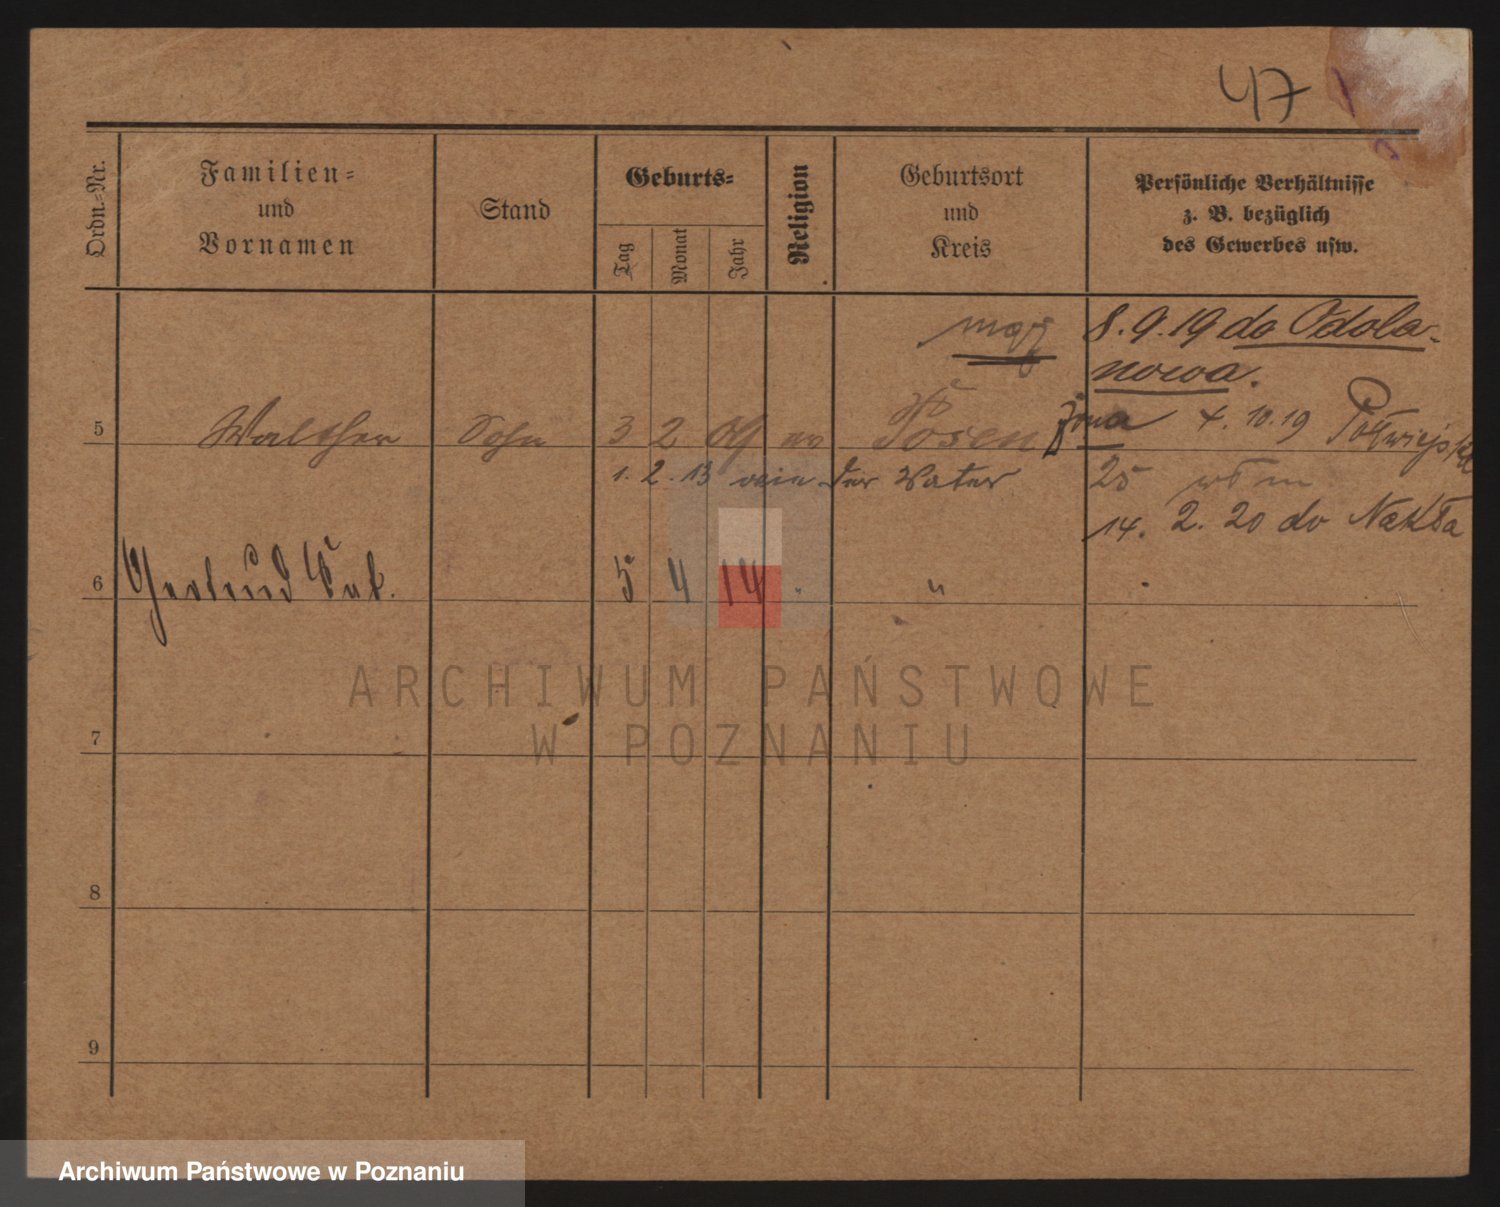 47
Ordn.-Nr.
Familien-
und
Vornamen
Stand
Geburts-
Tag
Monat
Jahr
Religion
Geburtsort
und
Kreis
Persönliche Verhältnisse
z. B. bezüglich
des Gewerbes usw.
mąż 8.9.19 do Odola-
nowa.
5 Walther Sohn 3 2 09 ev Posen żona 4.10.19 Półwiejska
1.2.13 wie der Vater 25
14. 2. 20 do Nakła
6 Gertrud 5 4 14 " "
ARCHIWUM PAŃSTWOWE
W POZNANIU
7
8
9
Archiwum Państwowe w Poznaniu